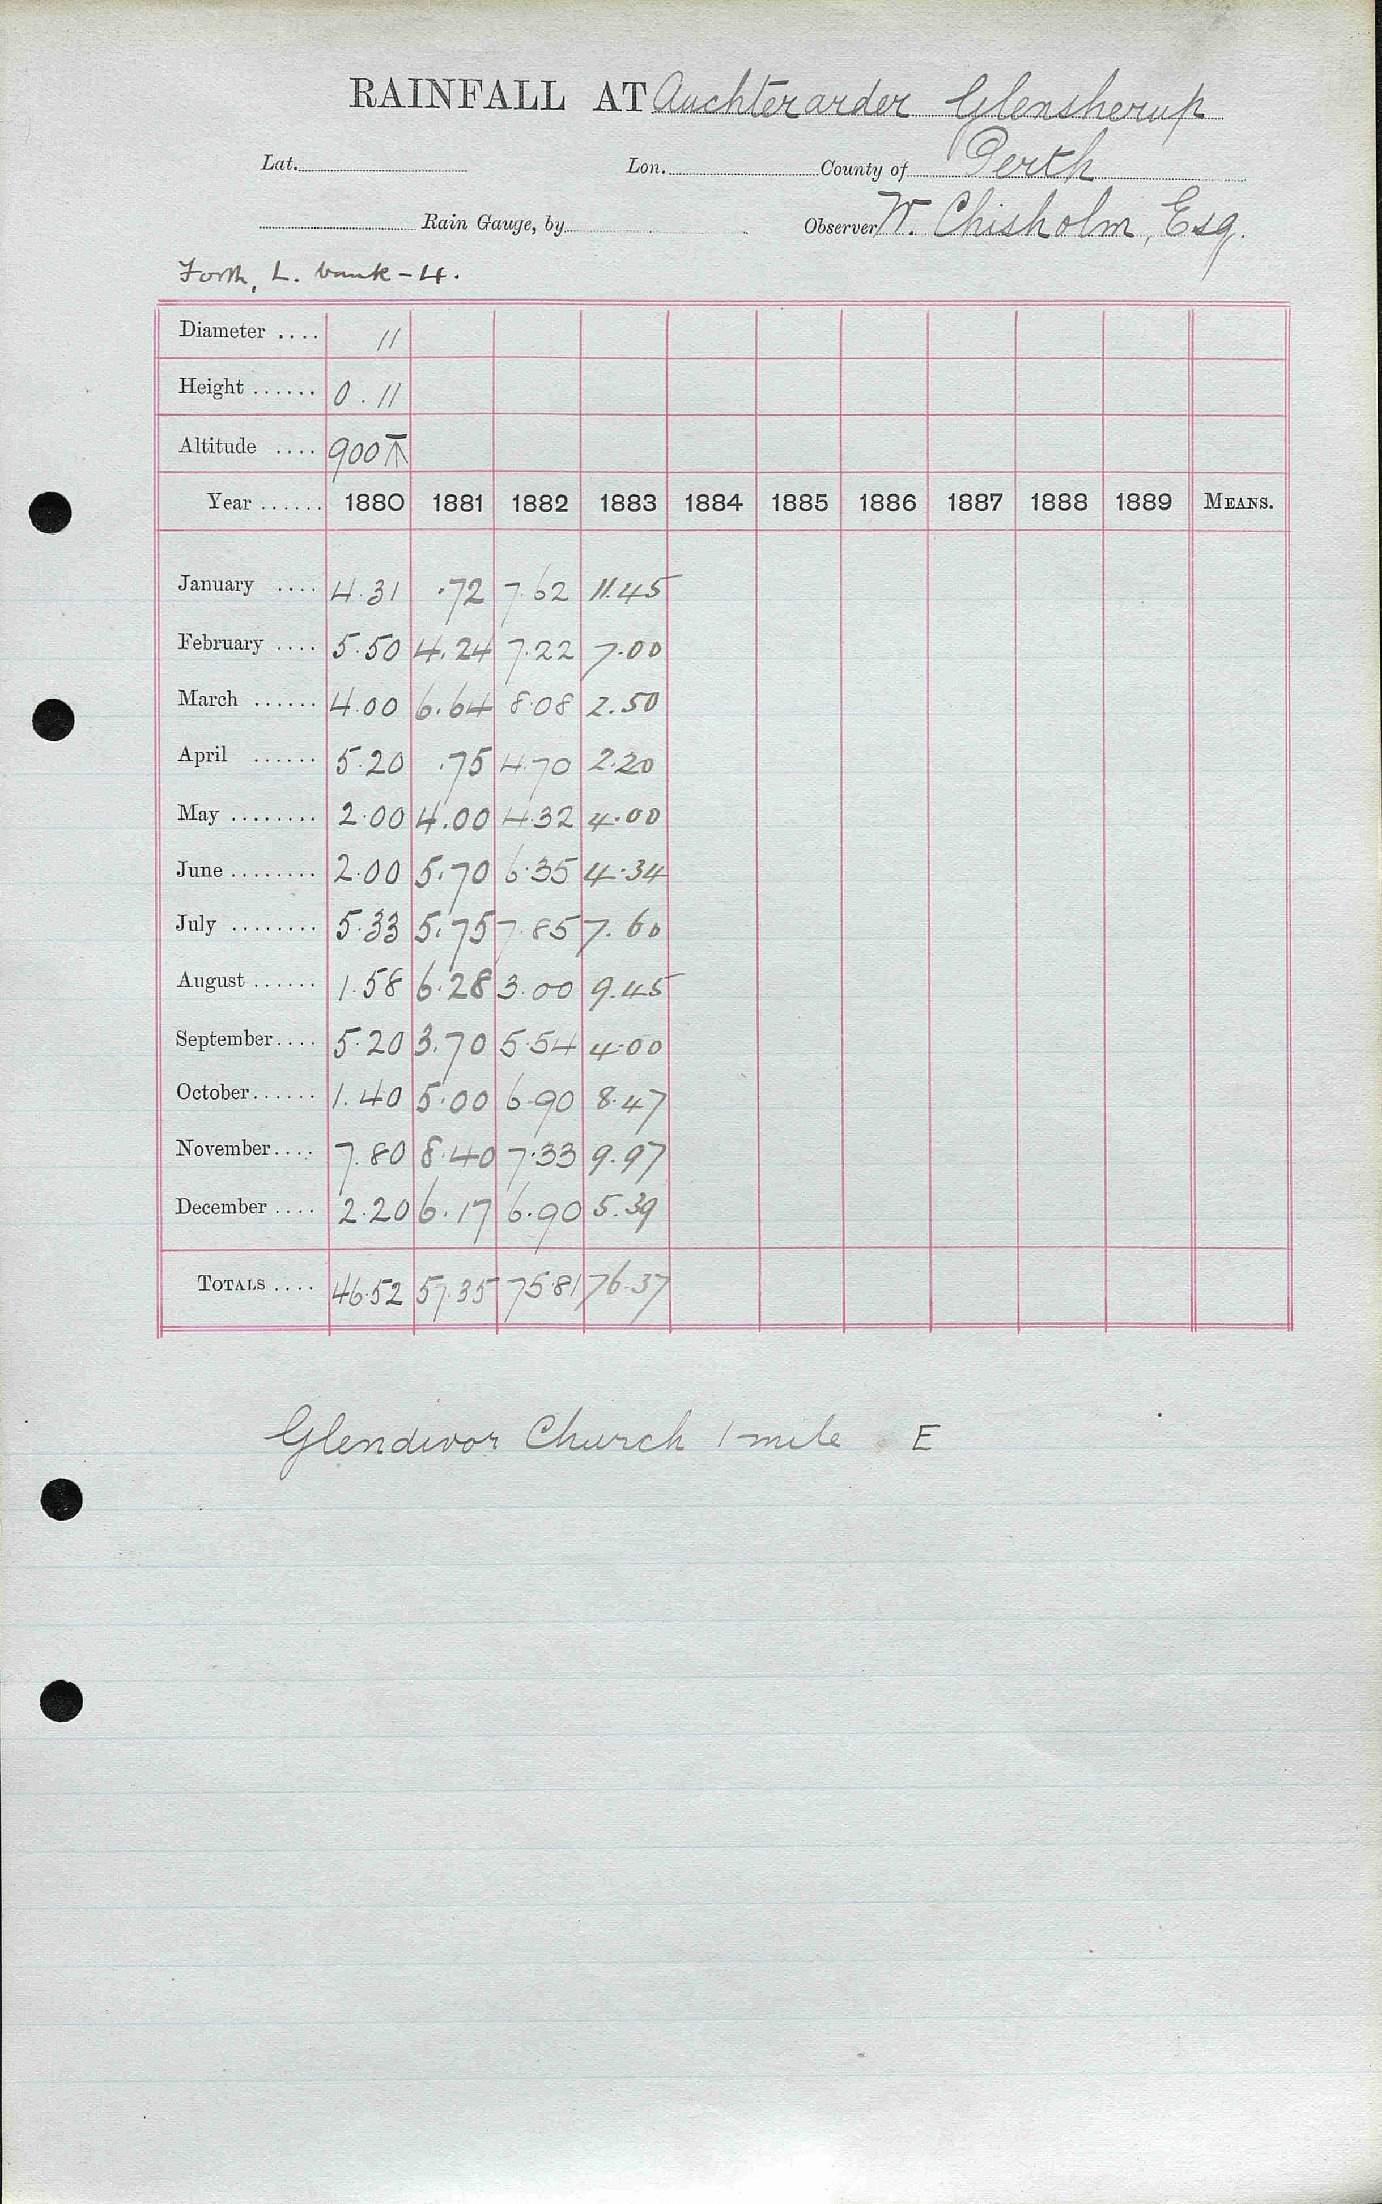 RAINFALL AT Auchterarder Glensherup
Lat. Lon. County of Perth
Rain Gauge, by Observer W. Chisholm, Esq.
Forth, L. bank - 4.
Diameter .... 11
Height ...... 0.11
Altitude .... 900
Year ...... 1880 1881 1882 1883 1884 1885 1886 1887 1888 1889 MEANS.
January .... 4.31 .72 7.62 11.45
February .... 5.50 4.24 7.22 7.00
March ...... 4.00 6.64 8.08 2.50
April ...... 5.20 .75 4.70 2.20
May ........ 2.00 4.00 4.32 4.00
June ........ 2.00 5.70 6.35 4.34
July ........ 5.33 5.75 7.85 7.60
August ...... 1.58 6.28 3.00 9.45
September .... 5.20 3.70 5.54 4.00
October ...... 1.40 5.00 6.90 8.47
November .... 7.80 8.40 7.33 9.97
December .... 2.20 6.17 6.90 5.39
TOTALS .... 46.52 57.35 75.81 76.37
Glendivor Church 1 mile E